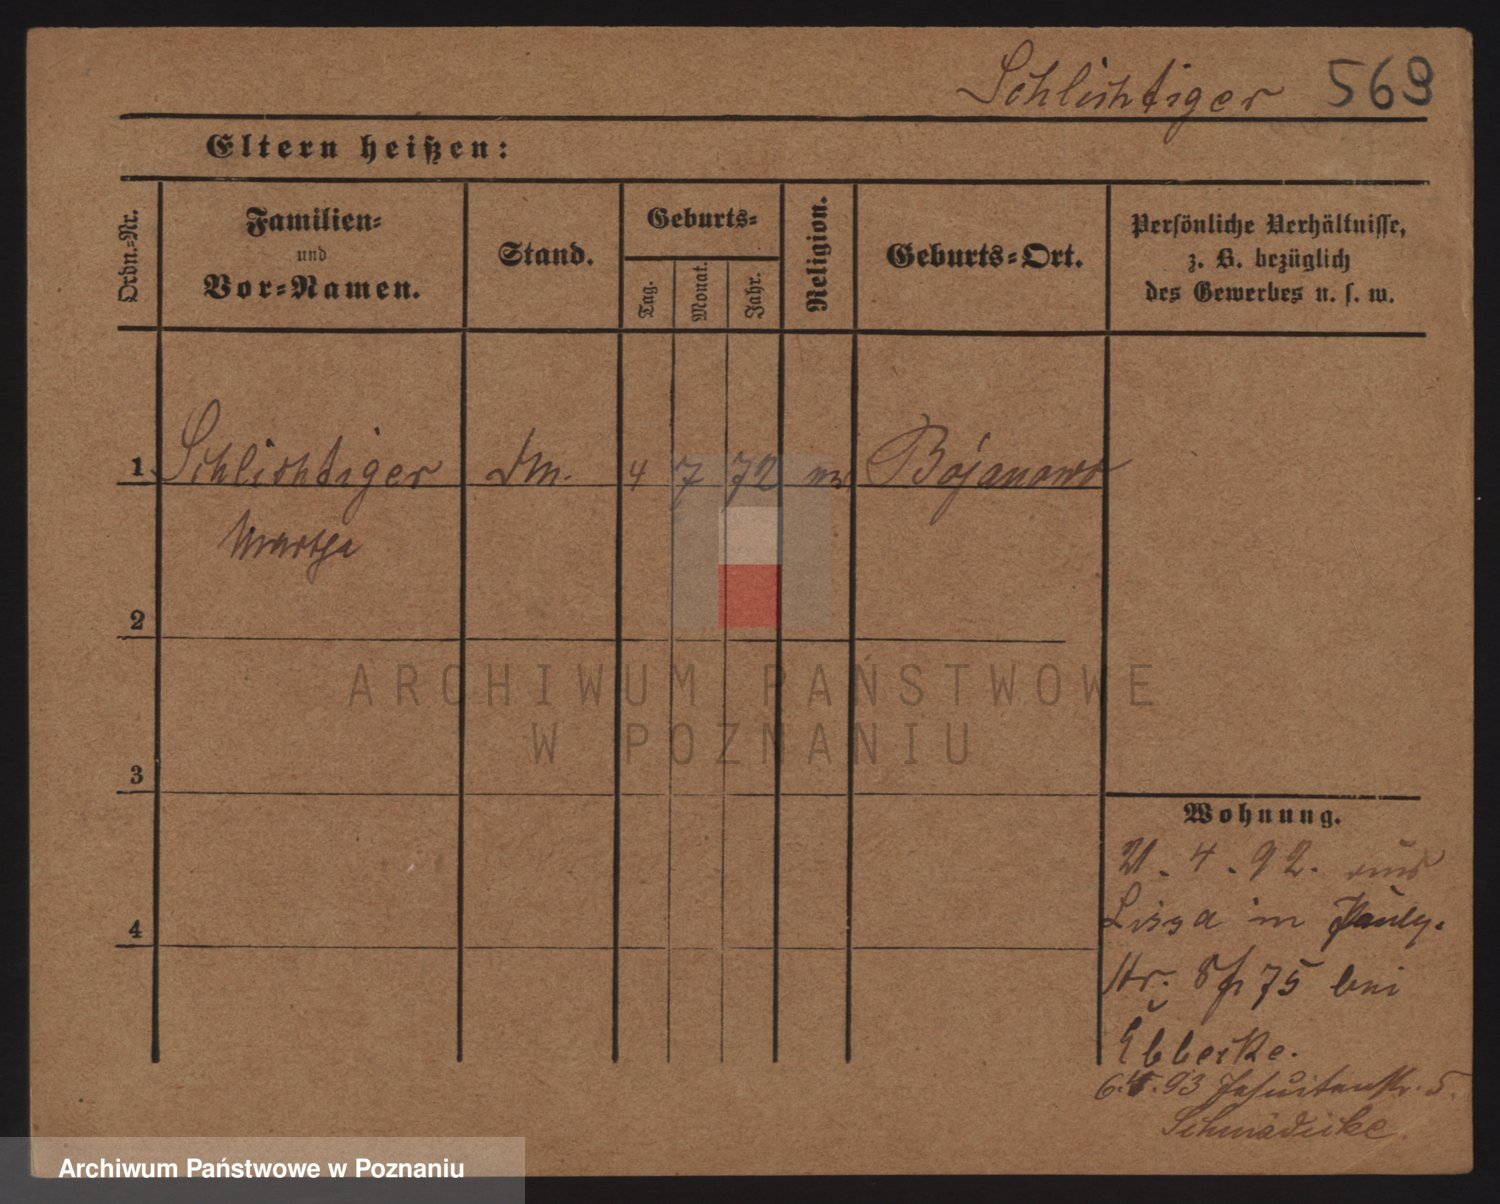 Schlichtiger 569
Eltern heißen:
Ordn.-Nr.
Familien-
und
Vor-Namen.
Stand.
Geburts-
Tag.
Monat.
Jahr.
Religion.
Geburts-Ort.
Persönliche Verhältnisse,
z. B. bezüglich
des Gewerbes u. s. w.
1 Schlichtiger 4 7 72 Bojanowo
Martha
2
ARCHIWUM PAŃSTWOWE
W POZNANIU
3
Wohnung.
21. 4. 92. aus
Lissa in Pauly.
Str. 75 bei
Ebbecke.
6. 93 Jesuitenstr. 5.
Schmädicke.
4
Archiwum Państwowe w Poznaniu